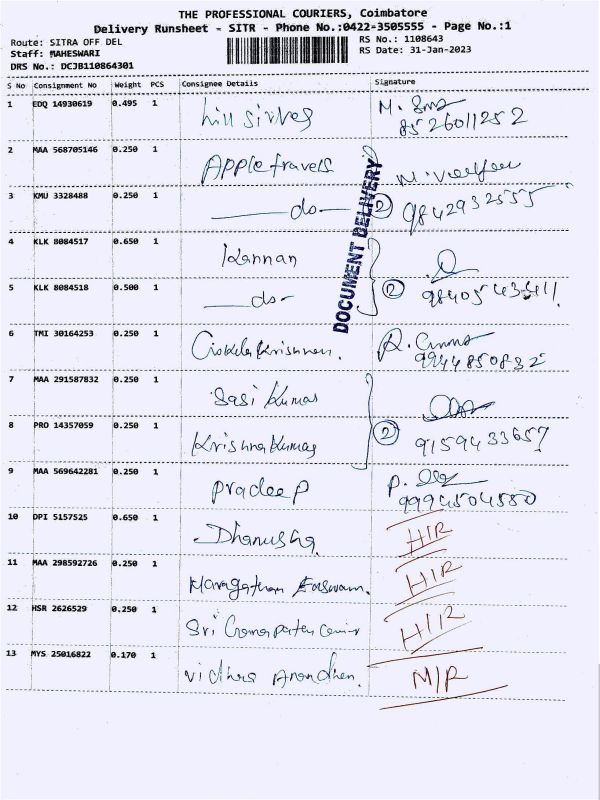 THE PROFESSIONAL COURIERS, Coimbatore
Delivery Runsheet - SITR - Phone No.:0422-3505555 - Page No.:1
Route: SITRA OFF DEL RS No.: 1108643
Staff: MAHESWARI RS Date: 31-Jan-2023
DRS No.: DCJB110864301
S No Consignment No Weight PCS Consignee Details Signature
1 EDQ 14930619 0.495 1 M.
8526011252
2 MAA 568705146 0.250 1 Apple travels M.
3 KMU 3328488 0.250 1 do 2 9842932555
DOCUMENT DELIVERY
4 KLK 8084517 0.650 1 Kannan
5 KLK 8084518 0.500 1 do 2
6 TMI 30164253 0.250 1 R.
9944850832
7 MAA 291587832 0.250 1 Sasi Kumar
8 PRO 14357059 0.250 1 Krishna Kumar 2 9159433657
9 MAA 569642281 0.250 1 Pradeep P.
9994504580
10 DPI 5157525 0.650 1 Dhanusha H/R
11 MAA 298592726 0.250 1 H/R
12 HSR 2626529 0.250 1 Sri H/R
13 MYS 25016822 0.170 1 Vidhya Anandhen. M/R